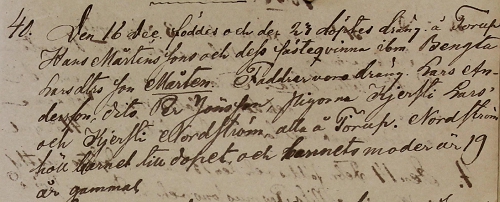 40. Den 16 Dec. föddes och den 23 döptes dräng. å Torup
Hans Mårtensons och dess fästeqvinna Bengta
Larsdtrs son Mårten. Faddrar voro dräng. Lars An-
dersson, dito Per Jönsson, pigorna Kjersti Lars-
och Kjersti Nordström, alla å Torup. Nordström
höll barnet till dopet, och barnets moder är 19
år gammal